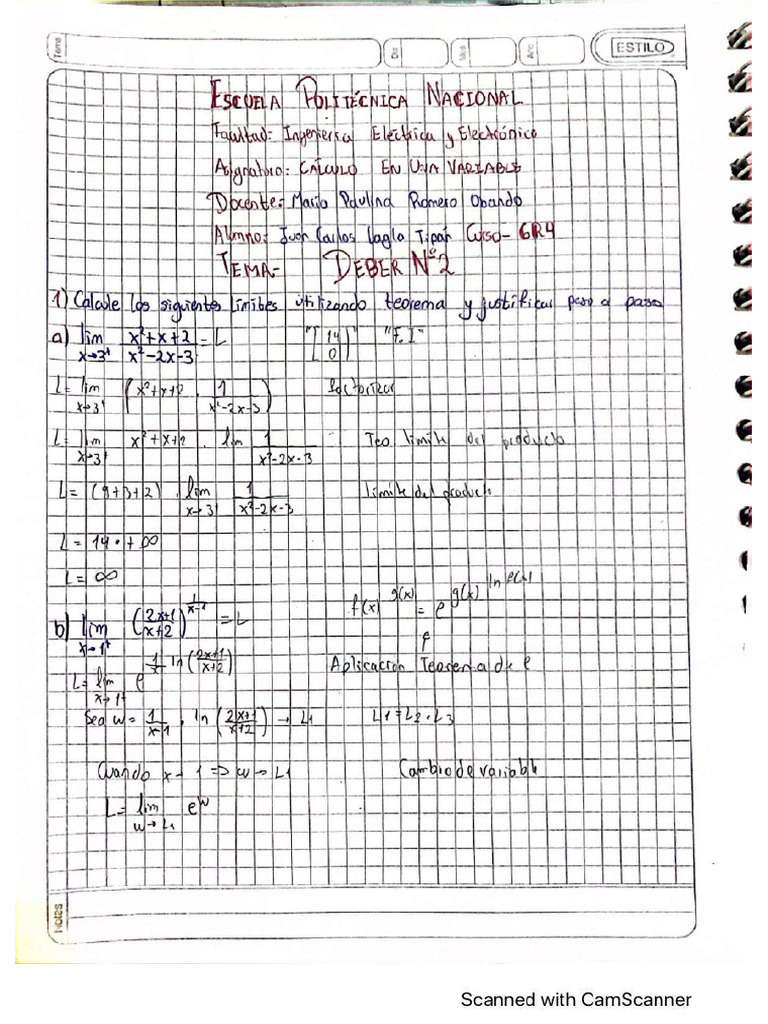 Tema
Dia
Mes
Año
ESTILO
ESCUELA POLITÉCNICA NACIONAL
Facultad: Ingenieria Eléctrica y Electrónica
Asignatura: CÁLCULO EN UNA VARIABLE
Docente: María Paulina Romero Obando
Alumno: Juan Carlos Vagla Tipán Curso- GR4
TEMA- DEBER Nº2
1) Calcule los siguientes límites utilizando teorema y justificar paso a paso
a) lim x→3⁺ (x²+x+2)/(x²-2x-3) = L "[14/0]" "F.I"
L = lim x→3⁺ (x²+x+2 · 1/(x²-2x-3)) factorizar
L = lim x→3⁺ x²+x+2 · lim 1/(x²-2x-3) Teo limite del producto
L = (9+3+2) · lim x→3⁺ 1/(x²-2x-3) limite del producto
L = 14 · +∞
L = ∞
b) lim x→1⁺ ((2x+1)/(x+2))^(1/(x-1)) = L f(x)^g(x) = e^(g(x) ln f(x))
L = lim x→1⁺ e^(1/x ln((2x+1)/(x+2))) Aplicación Teorema de e
Sea w = 1/(x-1) · ln((2x+1)/(x+2)) → L₁ L1 = L₂ · L₃
Cuando x→1 => w→L1 Cambio de variable
L = lim w→L₁ e^w
Notas
Scanned with CamScanner